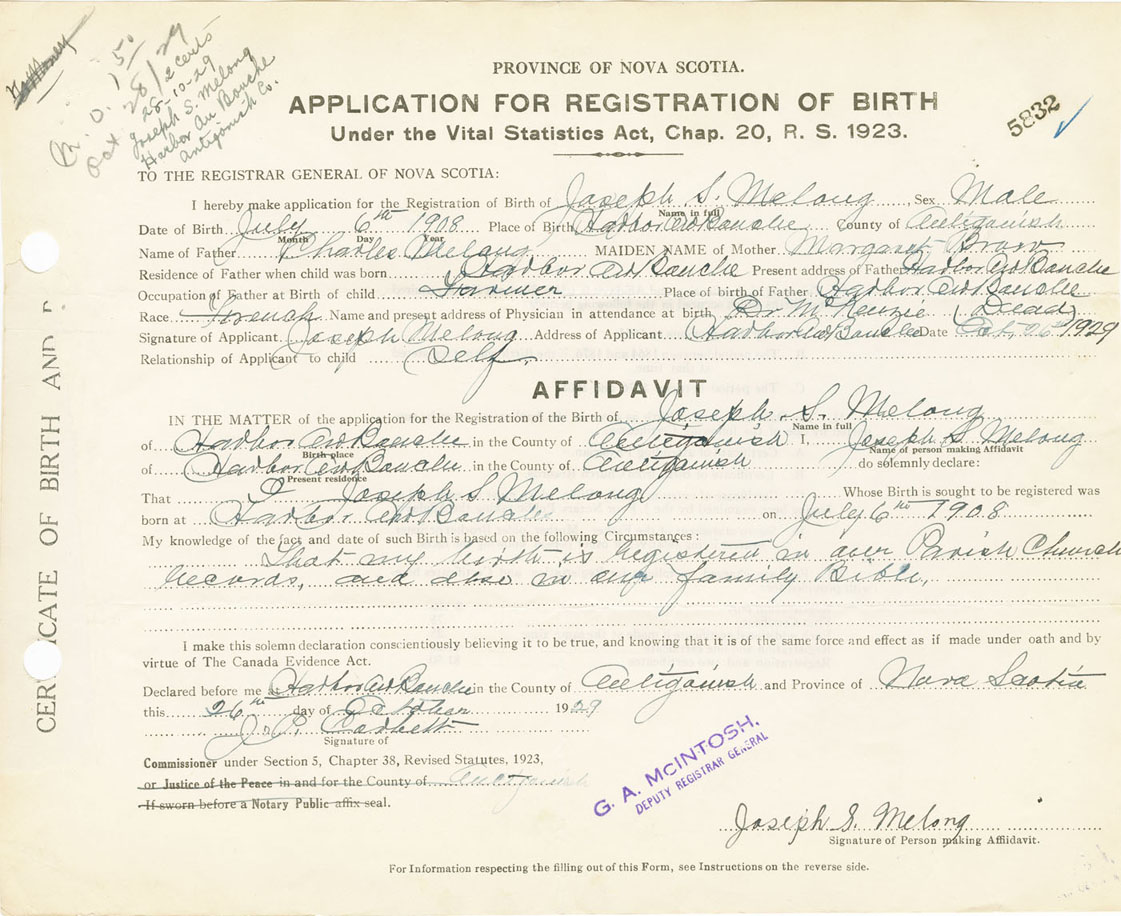 M. O. 1 50
Oct 28/29
2 cents
28-10-29
Joseph S. Melong
Harbor Au Bouche
Antigonish Co.
PROVINCE OF NOVA SCOTIA.
APPLICATION FOR REGISTRATION OF BIRTH
5832
Under the Vital Statistics Act, Chap. 20, R. S. 1923.
TO THE REGISTRAR GENERAL OF NOVA SCOTIA:
I hereby make application for the Registration of Birth of Joseph S. Melong Sex Male
Name in full
Date of Birth July 6th 1908 Place of Birth Harbor Au Bouche County of Antigonish
Month Day Year
Name of Father Charles Melong MAIDEN NAME of Mother Margaret
Residence of Father when child was born Harbor Au Bouche Present address of Father Harbor Au Bouche
Occupation of Father at Birth of child Farmer Place of birth of Father Harbor Au Bouche
Race French Name and present address of Physician in attendance at birth Dr McKenzie (Dead)
Signature of Applicant Joseph Melong Address of Applicant Harbor Au Bouche Date Oct, 26th 1929
Relationship of Applicant to child Self.
AFFIDAVIT
IN THE MATTER of the application for the Registration of the Birth of Joseph S. Melong
Name in full
of Harbor Au Bouche in the County of Antigonish I, Joseph S Melong
Birth place Name of person making Affidavit
of Harbor Au Bouche in the County of Antigonish do solemnly declare:
Present residence
That I Joseph S Melong Whose Birth is sought to be registered was
born at Harbor Au Bouche on July 6th 1908
My knowledge of the fact and date of such Birth is based on the following Circumstances:
That my birth is registered in our Parish Church
records, and also in our family Bible,
I make this solemn declaration conscientiously believing it to be true, and knowing that it is of the same force and effect as if made under oath and by
virtue of The Canada Evidence Act.
Declared before me at Harbor Au Bouche in the County of Antigonish and Province of Nova Scotia
this 26th day of October 1929
J. P. Corbett
Signature of
Commissioner under Section 5, Chapter 38, Revised Statutes, 1923,
or Justice of the Peace in and for the County of Antigonish
If sworn before a Notary Public affix seal.
G. A. McINTOSH,
DEPUTY REGISTRAR GENERAL
Joseph S. Melong
Signature of Person making Affiidavit.
For Information respecting the filling out of this Form, see Instructions on the reverse side.
CERTIFICATE OF BIRTH AND